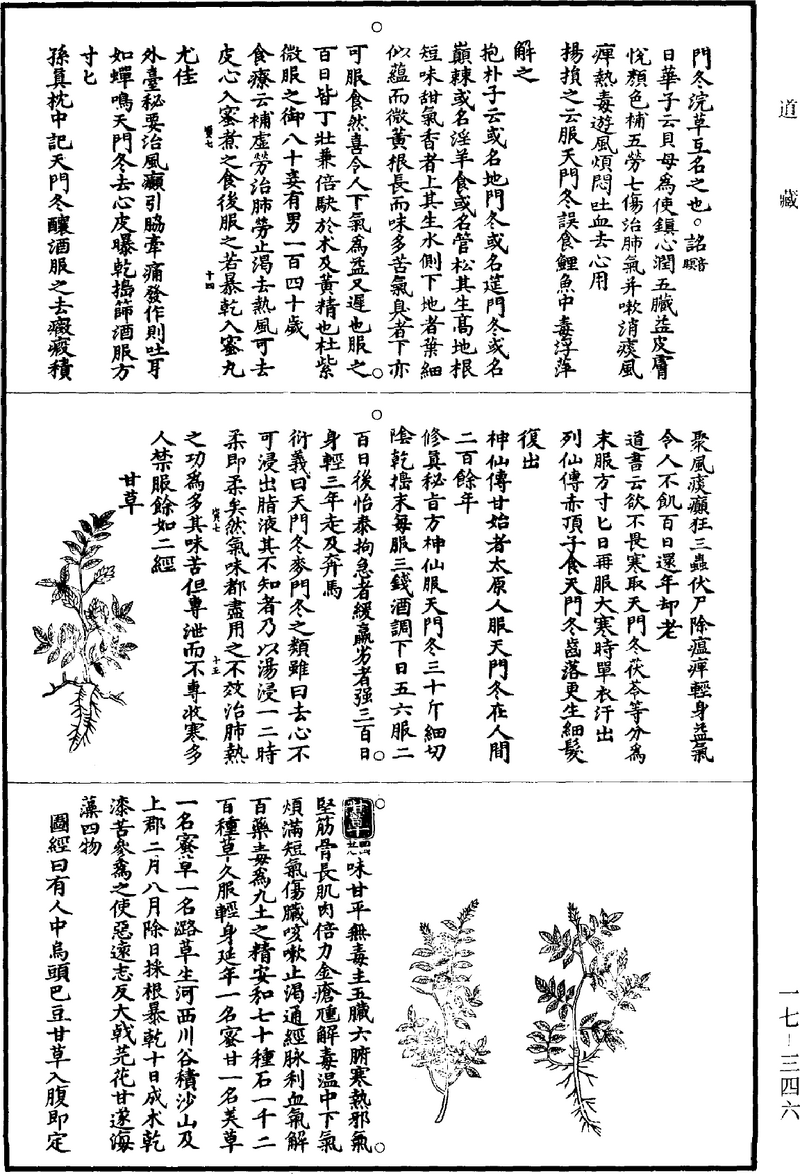 道藏
門冬浣草互名之也。詺音瞑
日華子云貝母爲使鎮心潤五臟益皮膚
悅顏色補五勞七傷治肺氣并嗽消痰風
痺熱毒遊風煩悶吐血去心用
楊損之云服天門冬誤食鯉魚中毒浮萍
解之
抱朴子云或名地門冬或名莚門冬或名
巔棘或名淫羊食或名管松其生高地根
短味甜氣香者上其生水側下地者葉細
似蘊而微黃根長而味多苦氣臭者下亦
可服食然喜令人下氣爲益又遲也服之
百日皆丁壯兼倍駃於朮及黃精也杜紫
微服之御八十妾有男一百四十歲
食療云補虛勞治肺勞止渴去熱風可去
皮心入蜜煮之食後服之若暴乾入蜜丸
尤佳
寶七
十四
外臺秘要治風癲引脇牽痛發作則吐耳
如蟬鳴天門冬去心皮曝乾搗篩酒服方
寸匕
孫真枕中記天門冬釀酒服之去癥瘕積
聚風痰癲狂三蟲伏尸除瘟痺輕身益氣
令人不飢百日還年却老
道書云欲不畏寒取天門冬茯苓等分爲
末服方寸匕日再服大寒時單衣汗出
列仙傳赤頂子食天門冬齒落更生細髮
復出
神仙傳甘始者太原人服天門冬在人間
二百餘年
修真秘旨方神仙服天門冬三十斤細切
陰乾搗末每服三錢酒調下日五六服二
百日後怡泰拘急者緩羸劣者强三百日
身輕三年走及奔馬
衍義曰天門冬麥門冬之類雖曰去心不
可浸出脂液其不知者乃以湯浸一二時
柔即柔矣然氣味都盡用之不效治肺熱
寶七
十五
之功爲多其味苦但專泄而不專收寒多
人禁服餘如二經
甘草
甘草
味甘平無毒主五臟六腑寒熱邪氣
堅筋骨長肌肉倍力金瘡尰解毒温中下氣
煩滿短氣傷臟咳嗽止渴通經脉利血氣解
百藥毒爲九土之精安和七十種石一千二
百種草久服輕身延年一名蜜甘一名美草
一名蜜草一名蕗草生河西川谷積沙山及
上郡二月八月除日採根暴乾十日成朮乾
漆苦參爲之使惡遠志反大戟芫花甘遂海
藻四物
圖經曰有人中烏頭巴豆甘草入腹即定
一七-三四六